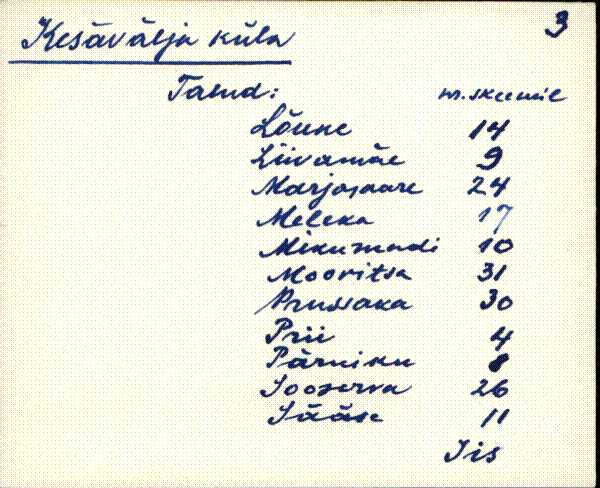 3
Kesävälja küla
Talud: nr. skeemil
Lõune 14
Liivamäe 9
Marjasaare 24
Meleka 17
Mikumadi 10
Mooritsa 31
Prussaka 30
Prii 4
Pärniku 8
Sooserva 26
Sääse 11